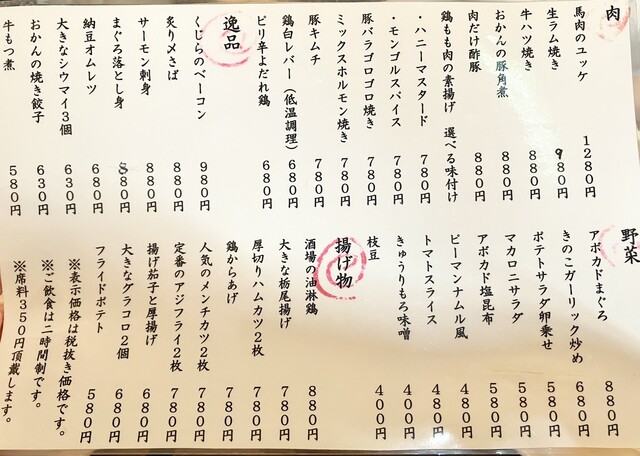 肉
馬肉のユッケ 1280円
生ラム焼き 980円
牛ハツ焼き 880円
おかんの豚角煮 880円
肉だけ酢豚 880円
鶏もも肉の素揚げ 選べる味付け
・ハニーマスタード 780円
・モンゴルスパイス 780円
豚バラゴロゴロ焼き 780円
ミックスホルモン焼き 780円
豚キムチ 780円
鶏白レバー(低温調理) 680円
ピリ辛よだれ鶏 680円
逸品
くじらのベーコン 980円
炙り〆さば 880円
サーモン刺身 880円
まぐろ落とし身 880円
納豆オムレツ 680円
大きなシウマイ3個 630円
おかんの焼き餃子 630円
牛もつ煮 580円
野菜
アボカドまぐろ 880円
きのこガーリック炒め 680円
ポテトサラダ卵乗せ 580円
マカロニサラダ 580円
アボカド塩昆布 580円
ピーマンナムル風 480円
トマトスライス 480円
きゅうりもろ味噌 400円
枝豆 400円
揚げ物
酒場の油淋鶏 880円
大きな栃尾揚げ 780円
厚切りハムカツ2枚 780円
鶏からあげ 780円
人気のメンチカツ2枚 780円
定番のアジフライ2枚 780円
揚げ茄子と厚揚げ 680円
大きなグラコロ2個 680円
フライドポテト 580円
※表示価格は税抜き価格です。
※ご飲食は二時間制です。
※席料350円頂戴します。